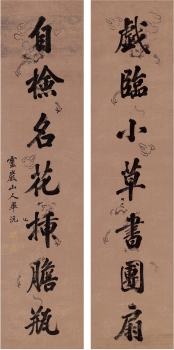 戲臨小草書團扇
自撿名花插膽瓶
靈巖山人畢沅